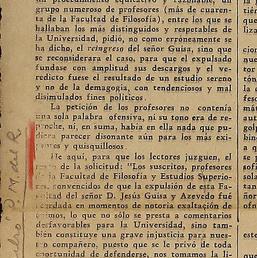 grupo numeroso de profesores (más de cuaren-
ta de la Facultad de Filosofía), entre los que se
hallaban los más distinguidos y respetables de
la Universidad, pidió, no como erróneamente se
ha dicho, el reingreso del señor Guisa, sino que
se reconsiderara el caso, para que el expulsado
fundase con amplitud sus descargos y el ve-
redicto fuese el resultado de un estudio sereno
y no de la demagogia, con tendenciosos y mal
disimulados fines políticos.
La petición de los profesores no contenía
una sola palabra ofensiva, ni su tono era de re-
proche, ni, en suma, había en ella nada que pu-
diera parecer disonante aún para los más exi-
gentes y quisquillosos
He aquí, para que los lectores juzguen, el
de la solicitud: "Los suscritos, profesores
la Facultad de Filosofía y Estudios Superio-
res, convencidos de que la expulsión de esta Fa-
cultad del señor D. Jesús Guisa y Azevedo fué
acordada en momentos de notoria exaltación de
ánimos, lo que no sólo se presta a comentarios
desfavorables para la Universidad, sino tam-
bién constituye una grave injusticia para nues-
tro compañero, puesto que se le privó de toda
oportunidad de defenderse, nos tomamos la li-